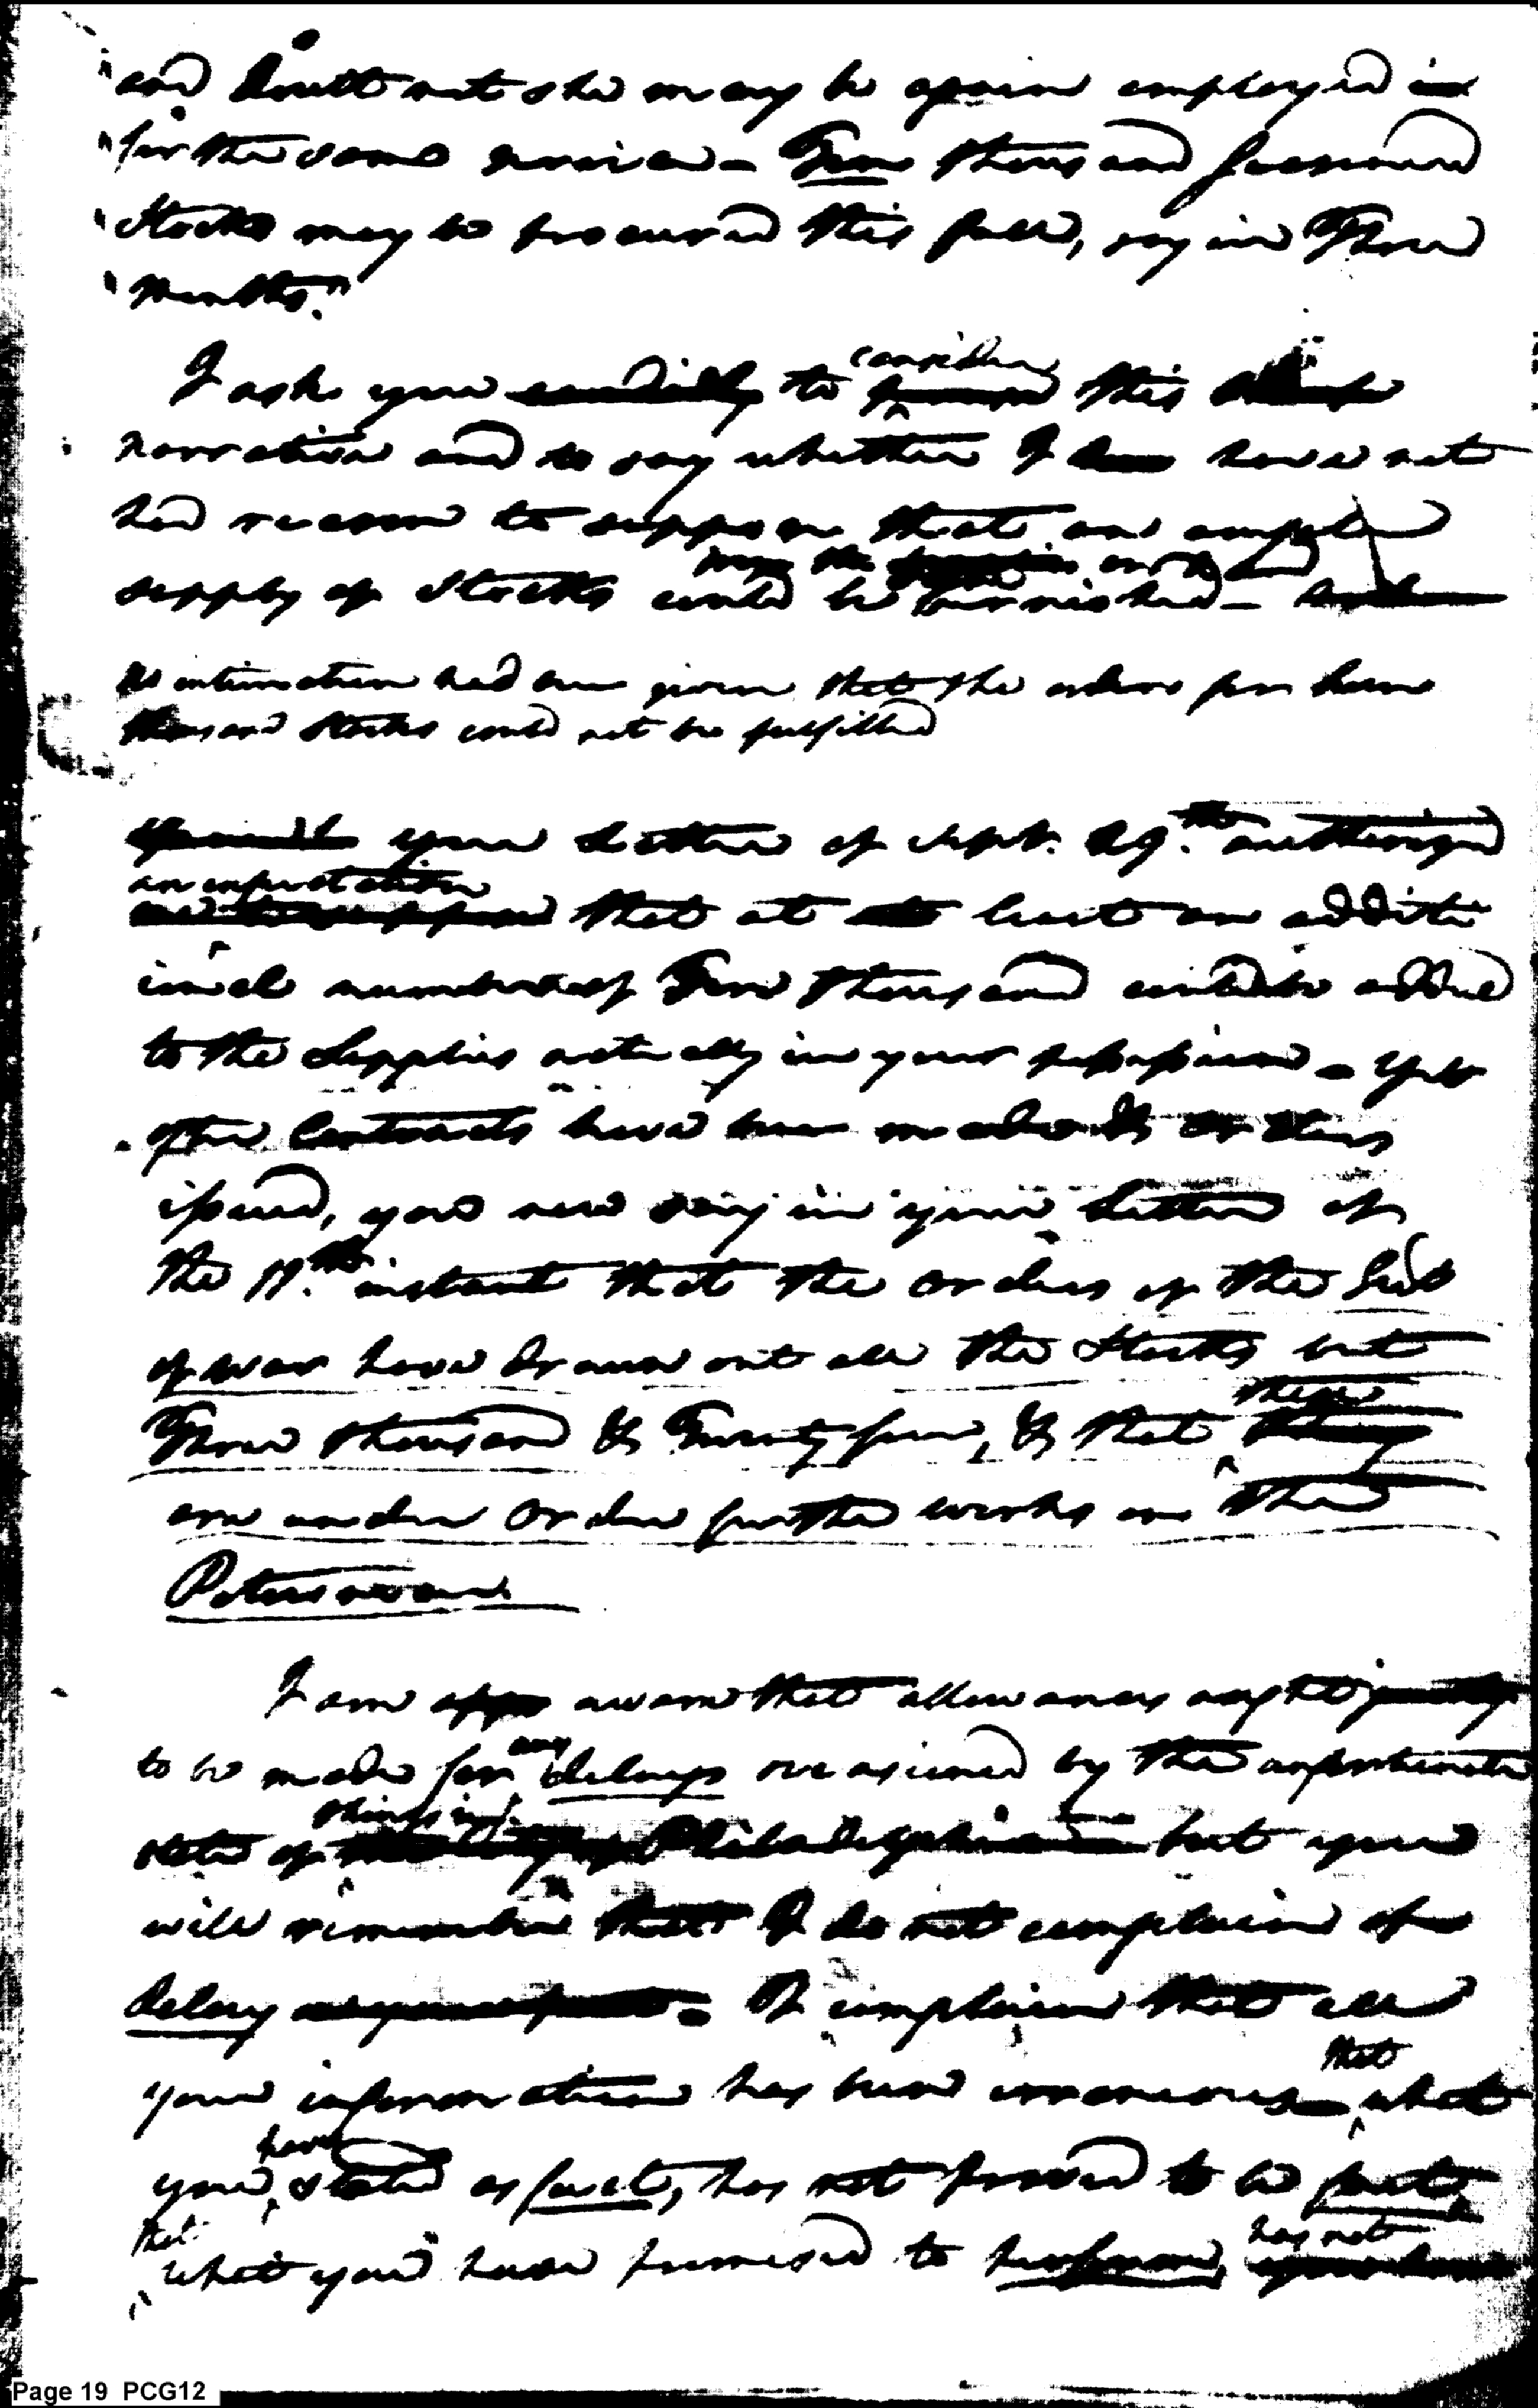 "and doubt not she may be again employed in
"for the same service – Ten thousand seasoned
"Stocks may be procured this fall, say in Three
"Months."
consider
I ask you candidly to this
narrative and to say whether I have not
had reason to suppose that an ample
supply of Stocks could be furnished –
No intimation had been given that the orders for
thousand Stocks could not be fulfilled
your Letter of Sept. 29.th authorized
an expectation
that at least an addit
ional number of Ten thousand could be added
to the Supplies actually in your possession – Yet
after Contracts have been made & orders
issued, you now say in your Letter of
the 11.th instant that the orders of the Secy
of War have drawn out all the Stocks but
these
Three thousand & Twenty four, & that they
are under order for the works on the
Potowmac
I am app aware that allowances ought justly
to be made for any delays occasioned by the unfortunate
things in
state of the city of Philadelphia but you
will remember that I do not complain of
delay – I complain that all
that
your information has been erroneous – what
have
you stated as fact, has not proved to be fact,
that
what you have promised to perform, has not
you have
Page 19 PCG12